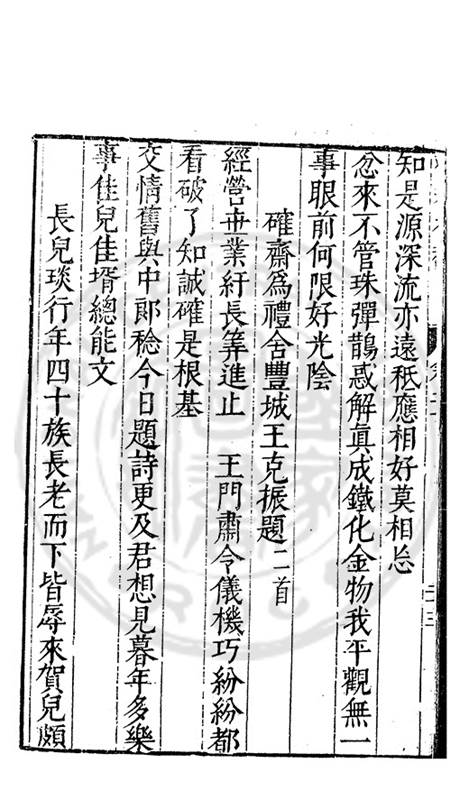 知是源深流亦遠秪應相好莫相㤀
忿來不管珠彈鵲惑解眞成鐵化金物我平觀無一
事眼前何限好光陰
確齋爲禮舍豐城王克振題二首
經營世業紆長筭進止 王門肅令儀機巧紛紛都
看破了知誠確是根基
交情舊與中郎稔今日題詩更及君想見暮年多樂
事佳兒佳壻總能文
長兒琰行年四十族長老而下皆辱來賀兒頗